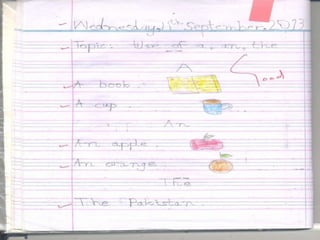 Wednesday, 11th September, 2013
Topic. Use of a, an, the
Good
A
A book.
A cup.
An
An apple.
An orange.
The
The Pakistan.